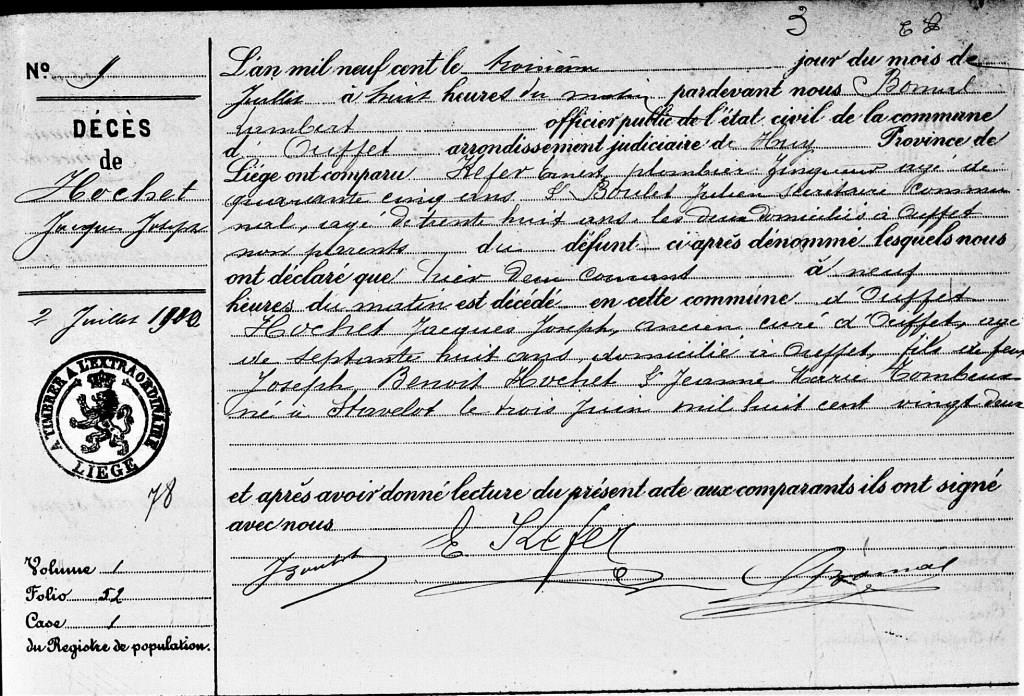 3
Nº 9
DÉCÈS
de
Hochet
Jacques Joseph
2 Juillet 1900
A TIMBRER A L'EXTRAORDINAIRE
LIEGE
78
Volume 1
Folio 52
Case 1
du Registre de population.
L'an mil neuf cent le troisième jour du mois de
Juillet à huit heures du matin pardevant nous Bomal
Lambert officier public de l'état civil de la commune
d'Ouffet arrondissement judiciaire de Huy Province de
Liége ont comparu Kefer Ernest, plombier zingueur agé de
quarante cinq ans & Boulet Julien Secrétaire commu-
nal, agé de trente huit ans, les deux domiciliés à Ouffet
non parents du défunt ci-après dénommé lesquels nous
ont déclaré que hier deux courant à neuf
heures du matin est décédé en cette commune d'Ouffet
Hochet Jacques Joseph, ancien curé d'Ouffet, agé
de septante huit ans, domicilié à Ouffet, fils de feu
Joseph, Benoit Hochet & Jeanne Marie
né à Stavelot le trois Juin mil huit cent vingt deux
et après avoir donné lecture du présent acte aux comparants ils ont signé
avec nous
E Kefer
JBoulet
LBomal